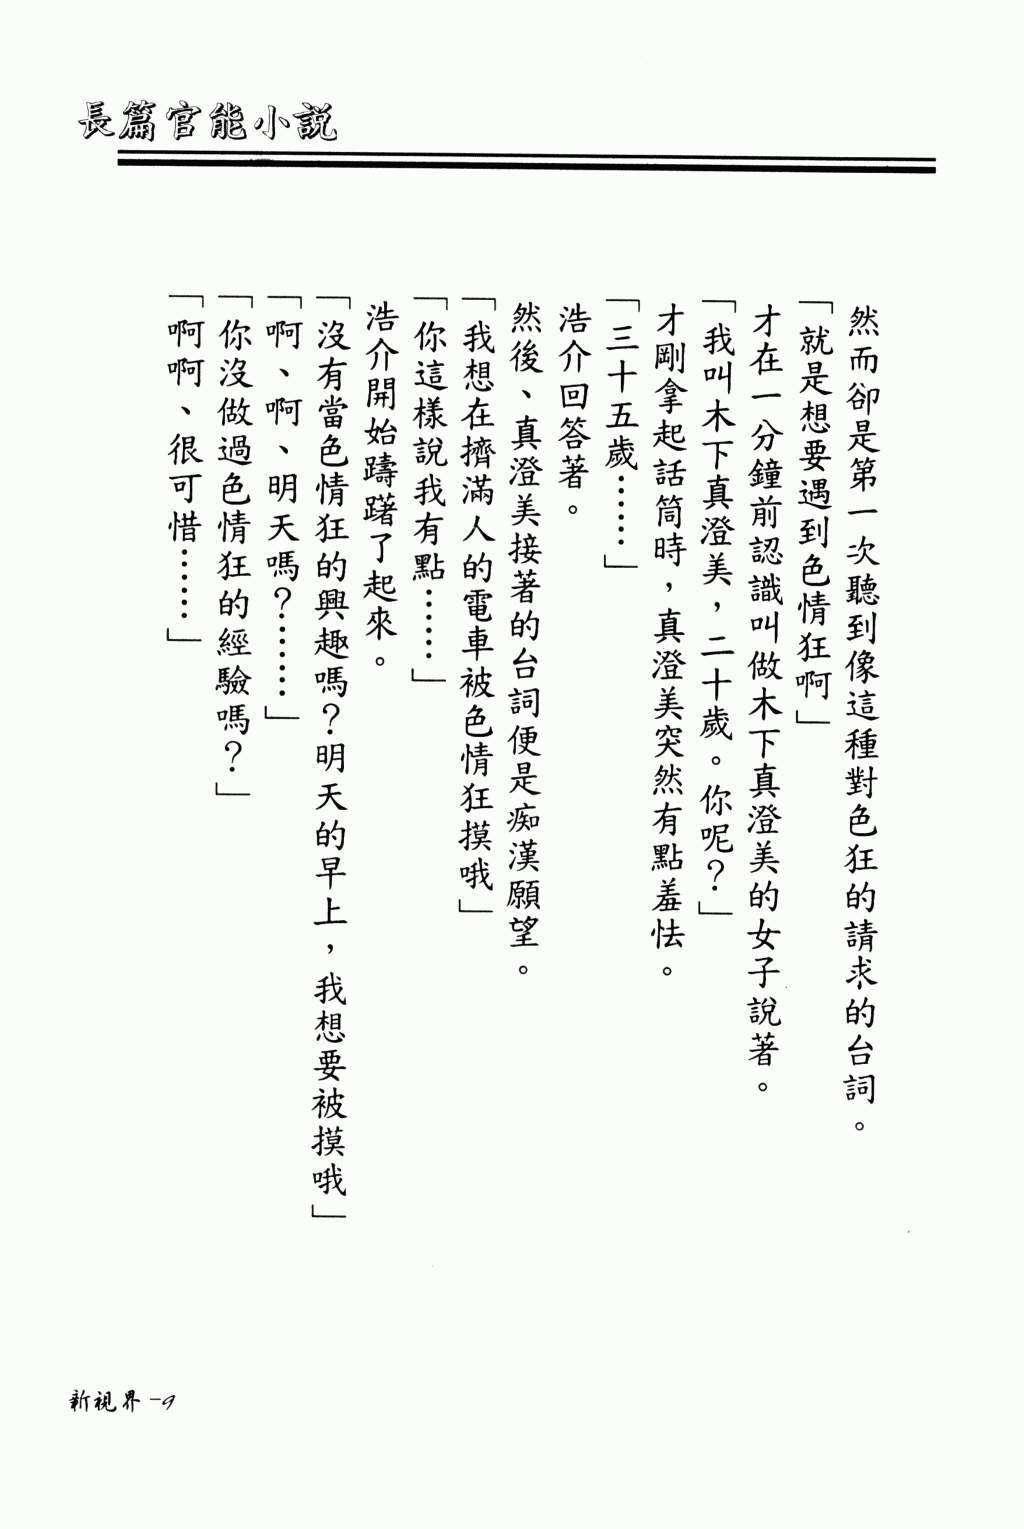 長篇官能小説
然而卻是第一次聽到像這種對色狂的請求的台詞。
「就是想要遇到色情狂啊」
才在一分鐘前認識叫做木下真澄美的女子說著。
「我叫木下真澄美，二十歲。你呢？」
才剛拿起話筒時，真澄美突然有點羞怯。
「三十五歲……」
浩介回答著。
然後、真澄美接著的台詞便是痴漢願望。
「我想在擠滿人的電車被色情狂摸哦」
「你這樣說我有點……」
浩介開始躊躇了起來。
「沒有當色情狂的興趣嗎？明天的早上，我想要被摸哦」
「啊、啊、明天嗎？……」
「你沒做過色情狂的經驗嗎？」
「啊啊、很可惜……」
新視界－9